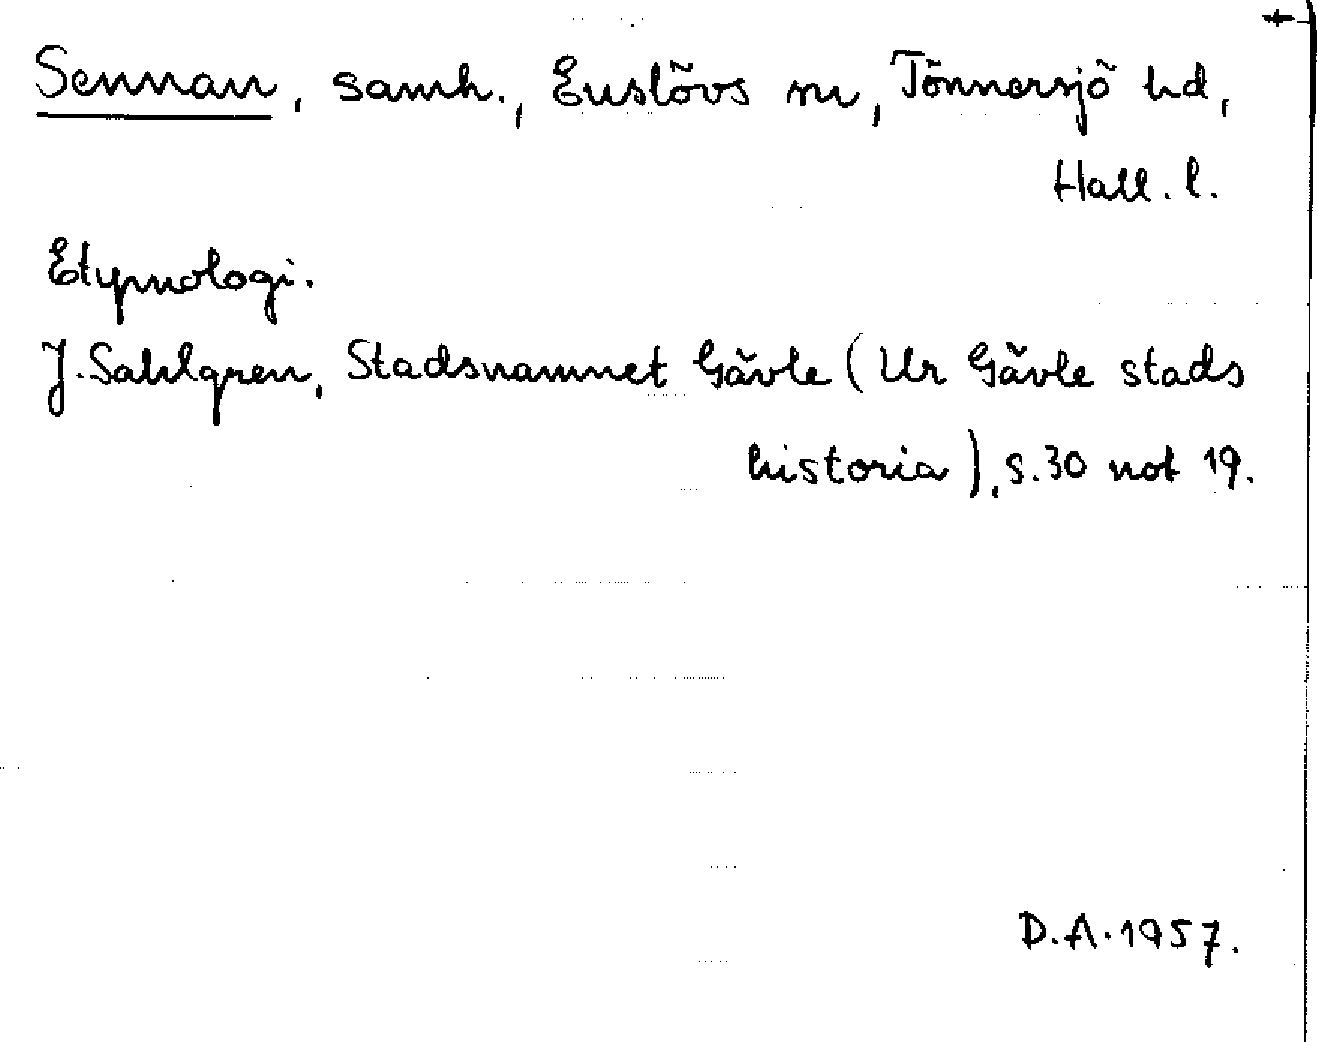 Sennan, samh., Enslövs sn, Tönnersjö hd,
Hall. l.
Etymologi.
J. Sahlgren, Stadsnamnet Gävle (Ur Gävle stads
historia), s. 30 not 19.
D.A. 1957.